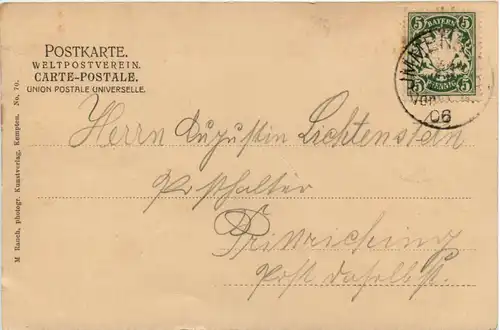 POSTKARTE.
WELTPOSTVEREIN.
CARTE-POSTALE.
UNION POSTALE UNIVERSELLE.
5 BAYERN 5
5 PFENNIG 5
IMMENS
06
Herrn Augustin Lichtenstein
Posthalter
Prittriching
Post daselbst.
M Rauch, photogr. Kunstverlag, Kempten. No. 70.